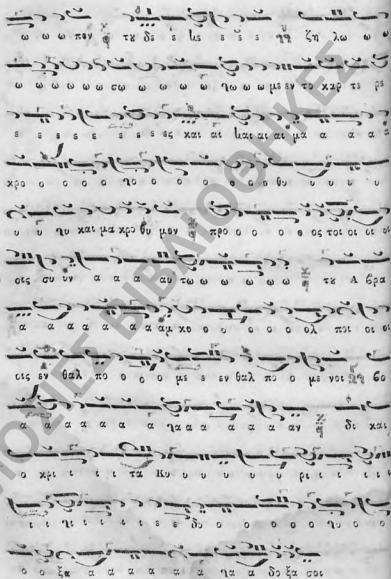 ω ω ω παν του δε ε ϗε ε ε ε ε ζη λω ω ω
ω ω ω ω ω ω σω ω ω ω ω χω ω ω μεν το καρ τε ρε
ε ε ε ε ε ε ε ε ες και αι ϗαι αι αι μα α α α α
κρο ο ο ο ο χο ο ο ο ο ο θυ υ υ υ υ
υ υ χυ και μα κρο θυ μον προ ο ο ο ο ος τοι οι οι οι
οις συ υν α α α αυ τω ω ω ω ω ω του Α βρα
α α α α α α α αμ κο ο ο ο ο ο ολ ποι οι οι
οις εν θαλ πο ο ο ο με ε εν θαλ πο ο με νοι
α α α α α α χα α α α α α αν δι και
ο κρι ι ι ι τα Κυ υ υ υ υ υ ρι ι ι ι ι
ι ι χι ι ι ι ε ε δο ο ο ο ο ο χο ο ο
ο ο ξα α α α α α α χα α δο ξα σοι
ΔΗΜΟΣΙΕΣ ΒΙΒΛΙΟΘΗΚΕΣ